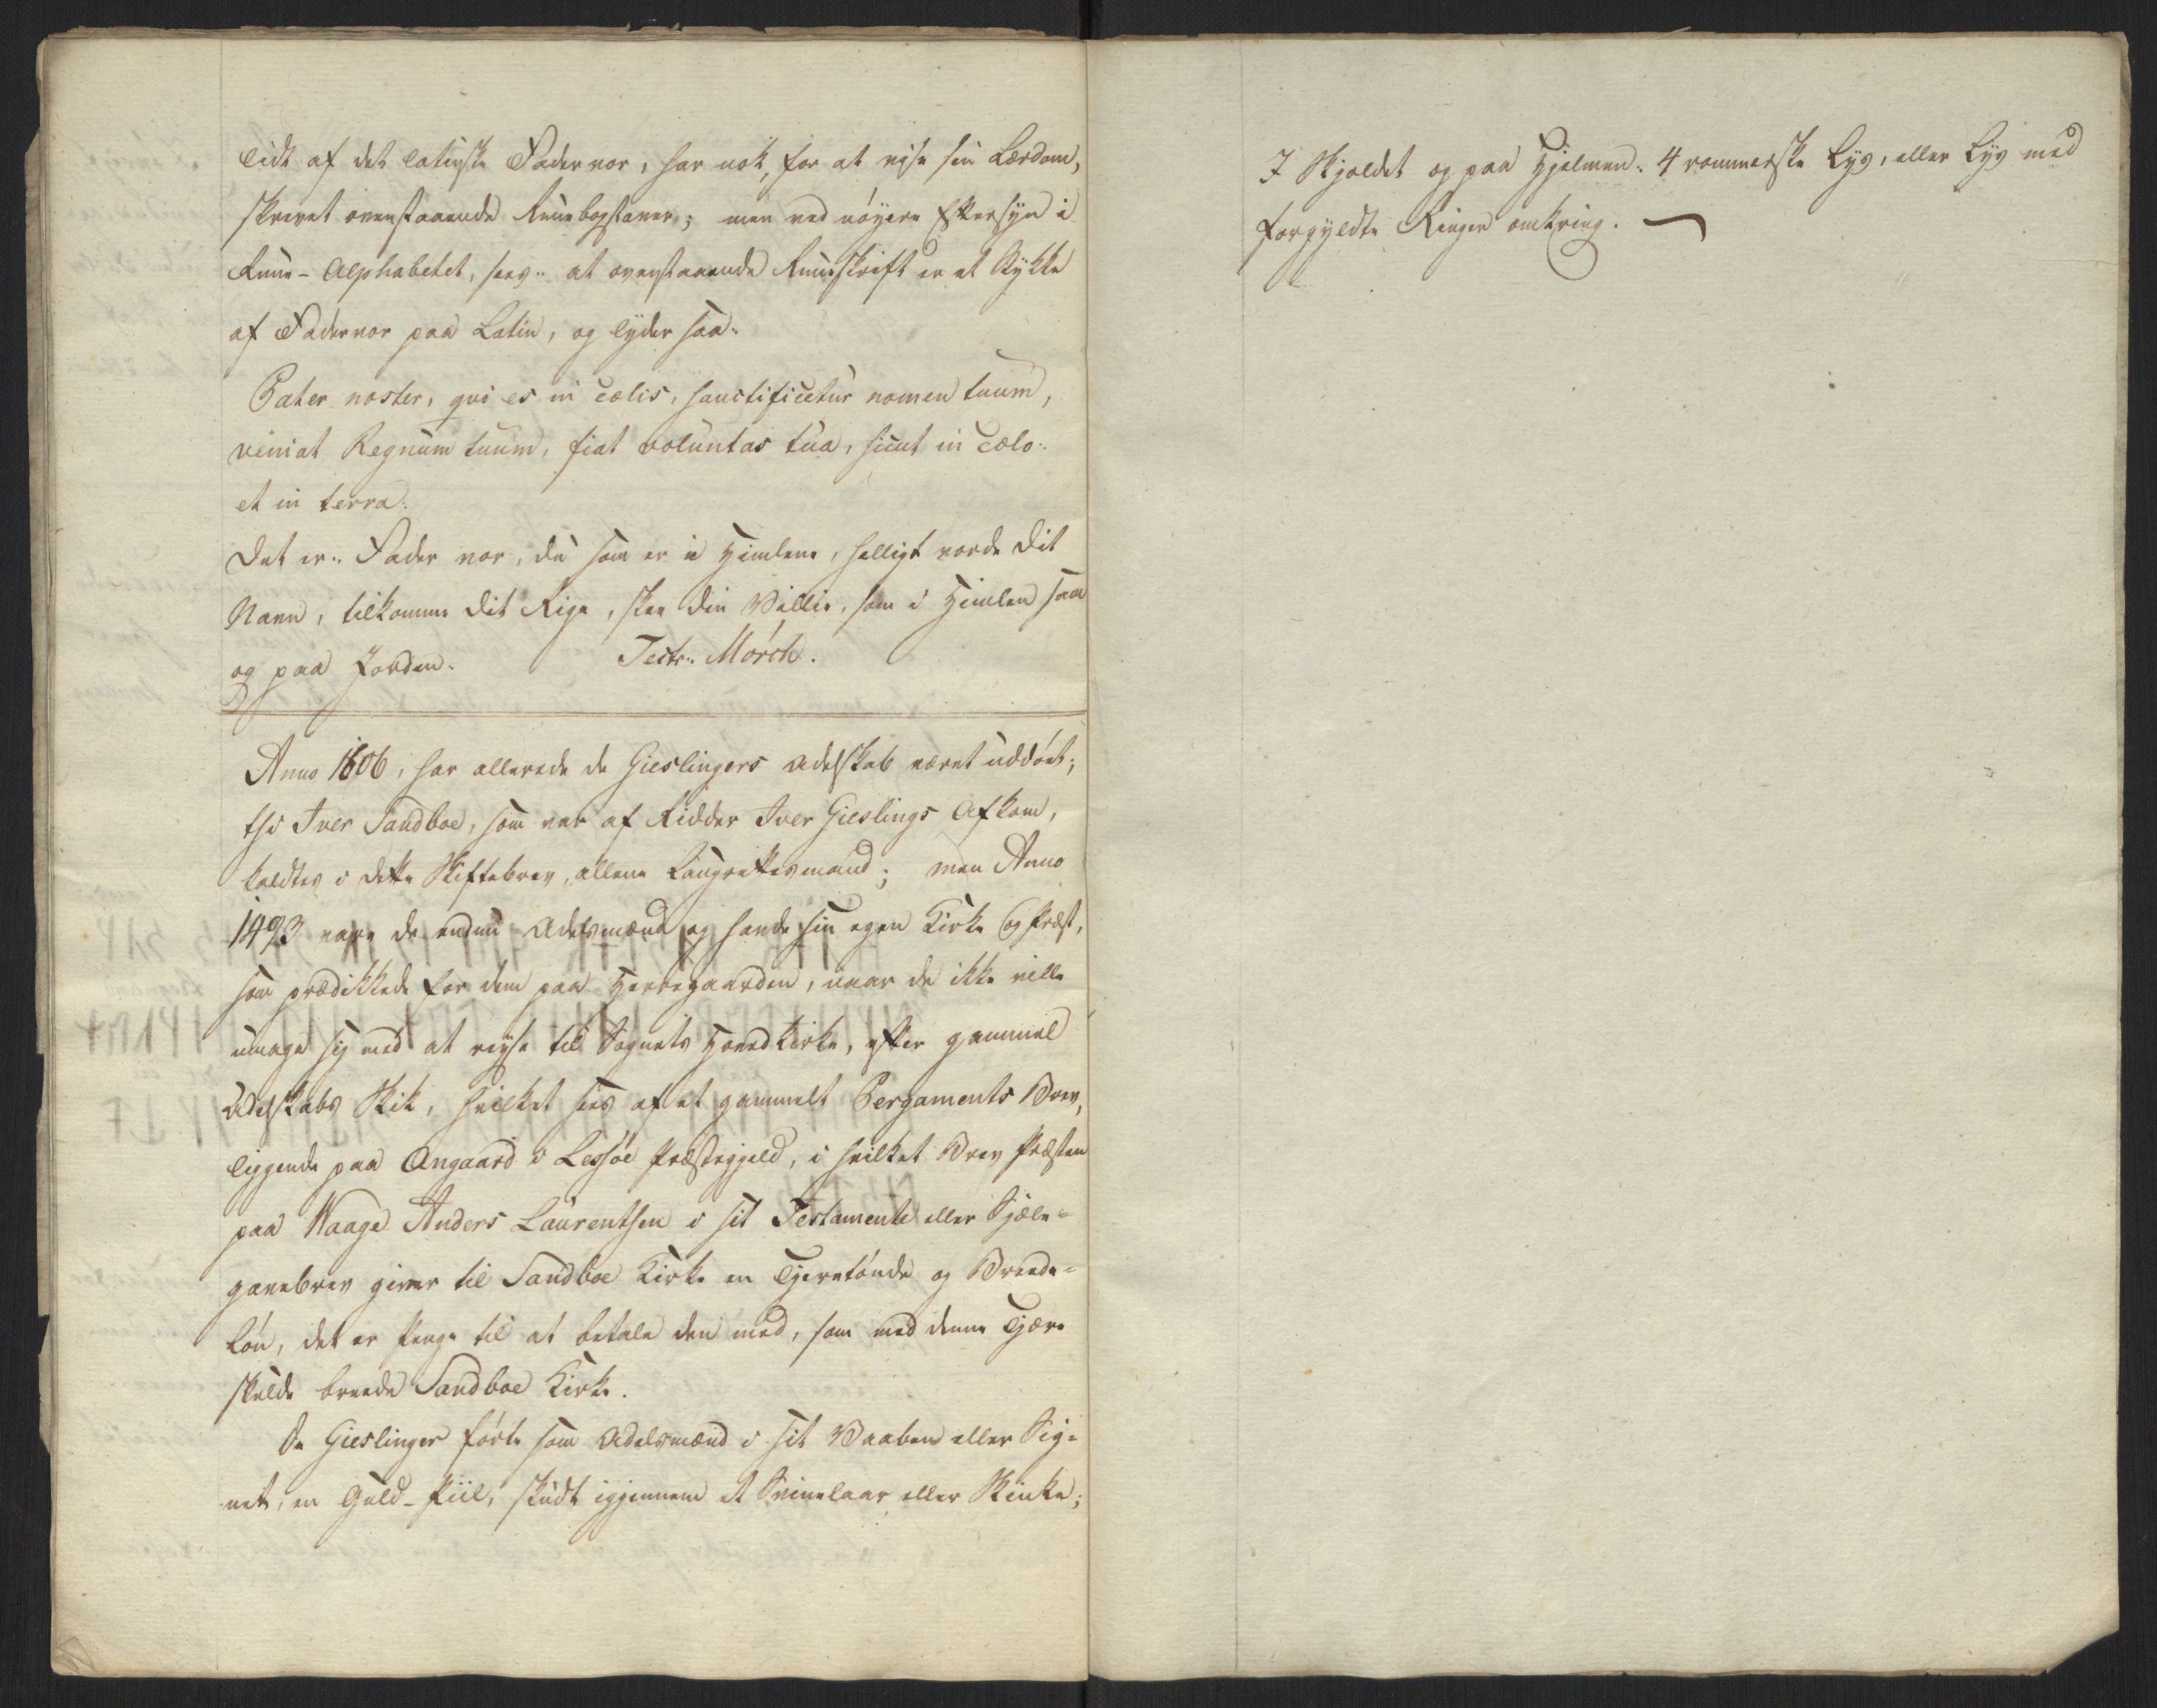 lidt af det latinske Fader vor, har nok, for at vise sin Lærdom,
skrevet ovenstaaende Runebogstaver; men ved nöyere Eftersyn i
Rune-Alphabetet, sees: at ovenstaaende Runeskrift er et Stykke
af Fadervor paa Latin, og lyder saa:
Pater noster, qvi es in cælis, sanctificetur nomen tuum,
veniat Regnum tuum, fiat voluntas tua, sicut in cælo:
et in terra:
Det er: Fader vor, du som er i Himlene, helligt vorde dit
Navn, tilkomme dit Rige, skee din Villie, som i Himlen saa
og paa Jorden. Testr: Mörch.
Anno 1606, har allerede de Gieslingers Adelskab været uddöet;
thi Iver Sandboe, som var af Ridder Iver Gieslings Afkom,
kaldtes i dette Skiftebrev, allene Laugrettesmand; men Anno
1493 vare de endnu Adelsmænd og havde sin egen Kirke og Præst,
som prædikkede for dem paa Herregaarden, naar de ikke ville
umage sig med at reyse til Sognets Hovedkirke, efter gammel
Adelskabs Skik, hvilket sees af et gammelt Pergaments Brev,
liggende paa Angaard i Lessöe Præstegjeld, i hvilket Brev Præsten
paa Waage Anders Laurentsen i sit Testamente eller Sjæle-
gavebrev giver til Sandboe Kirke en Tjæretönde og Breede-
Lön, det er Penge til at betale den med, som med denne Tjære
skulde breede Sandboe Kirke.
De Gieslinger förte som Adelsmænd i sit Vaaben eller Sig-
net, en Guld-Piil, skudt igjennem et Svinelaar eller Skinke;
I Skjoldet og paa Hjelmen: 4 rommerske Lys, eller Lys med
forgyldte Ringer omkring.